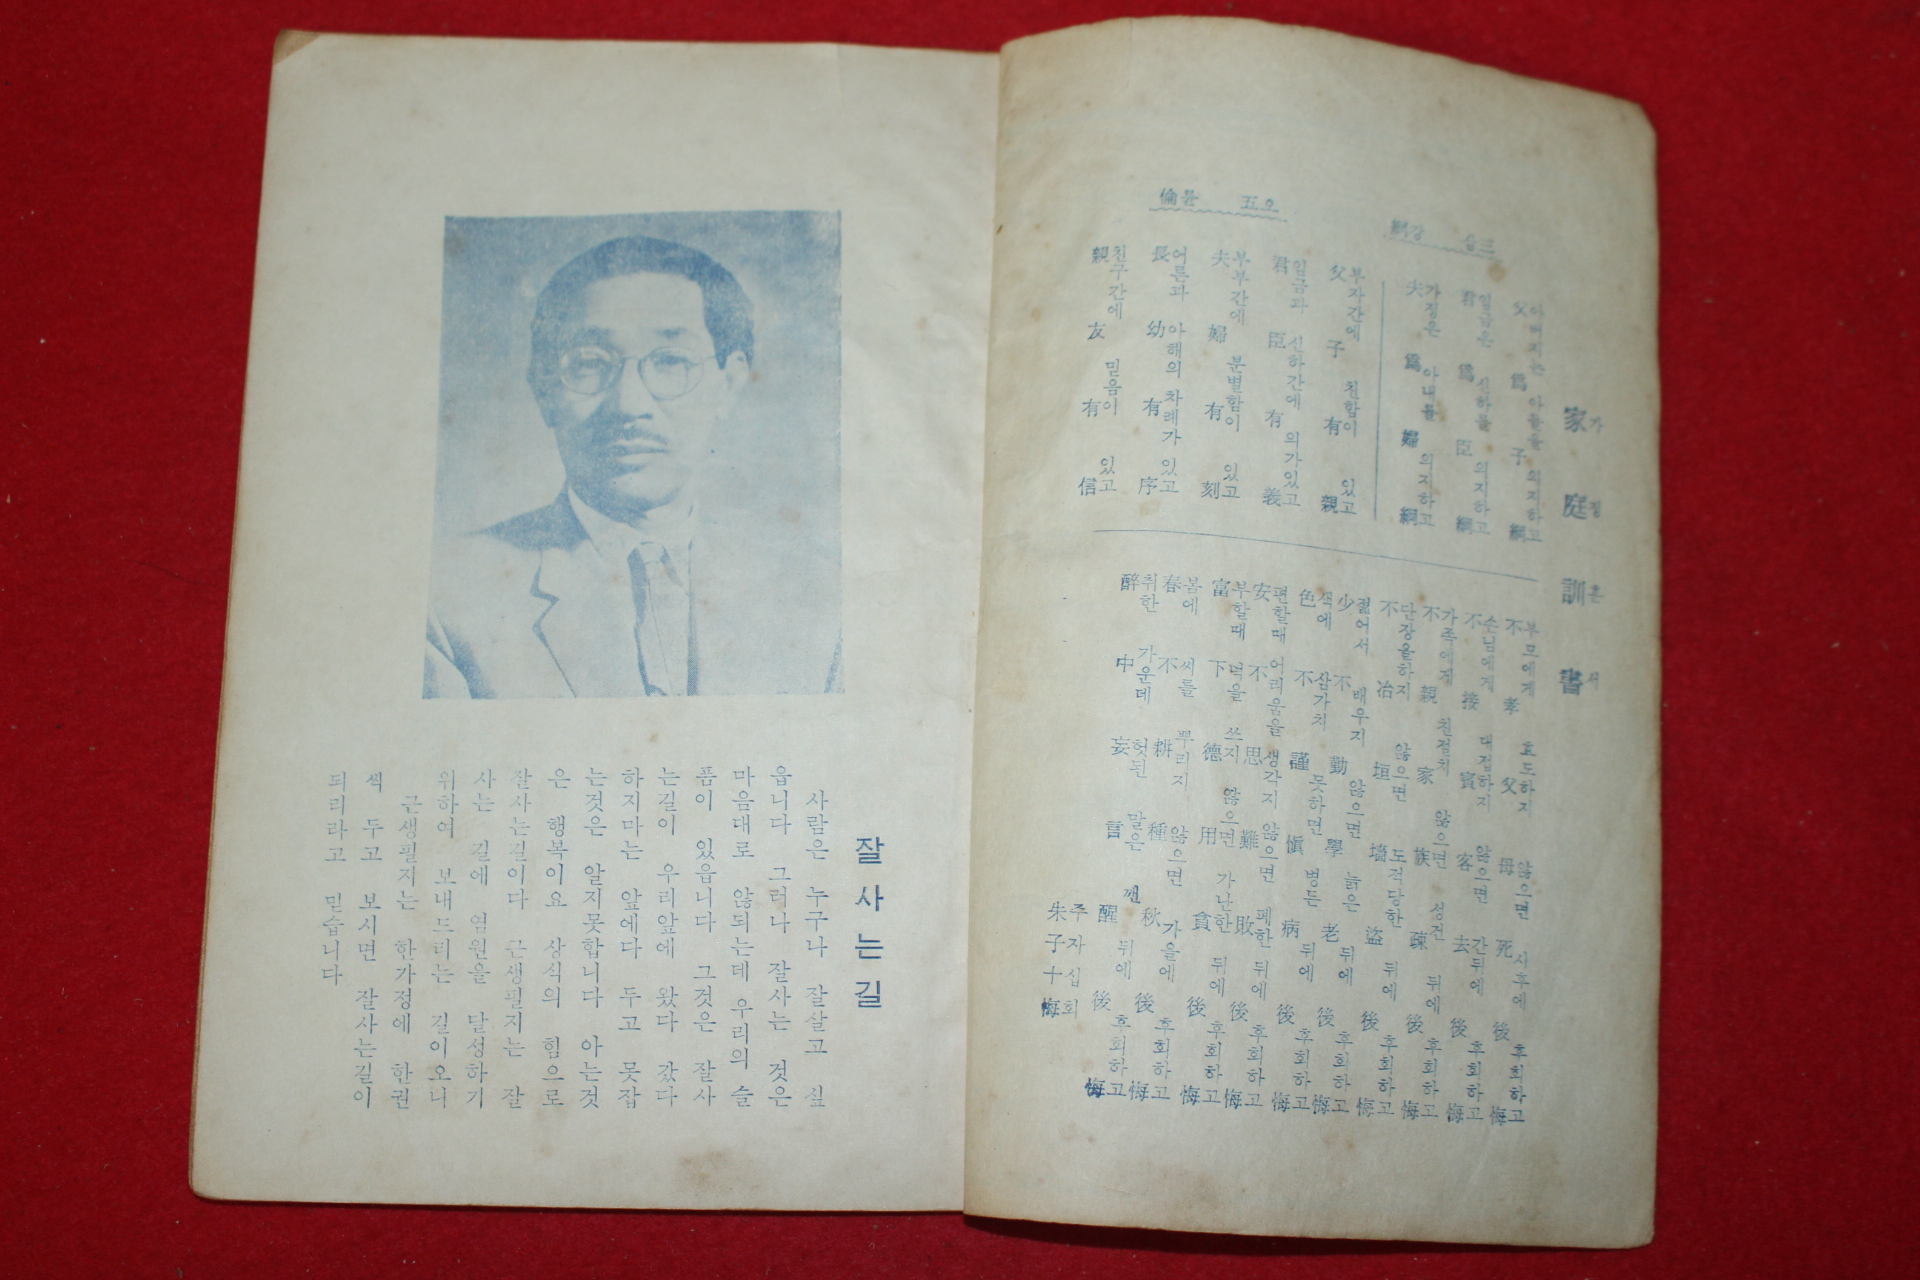 家庭訓書
가정훈서
三삼 綱강
父爲子綱
아버지는 아들을 의지하고
君爲臣綱
임금은 신하를 의지하고
夫爲婦綱
가정은 아내를 의지하고
五오 倫륜
父子有親
부자간에 친함이 있고
君臣有義
임금과 신하간에 의가있고
夫婦有刻
부부간에 분별함이 있고
長幼有序
어른과 아해의 차례가 있고
親友有信
친구간에 믿음이 있고
不孝父母死後悔
부모에게 효도하지 않으면 사후에 후회하고
不接賓客去後悔
손님에게 대접하지 않으면 간뒤에 후회하고
不親家族疎後悔
가족에게 친절치 않으면 성건 뒤에 후회하고
不冶垣墻盜後悔
단장을하지 않으면 도적당한 뒤에 후회하고
少不勤學老後悔
젊어서 배우지 않으면 늙은 뒤에 후회하고
色不謹愼病後悔
색에 삼가치 못하면 병든 뒤에 후회하고
安不思難敗後悔
편할때 어려움을 생각지 않으면 폐한 뒤에 후회하고
富下德用貧後悔
부할때 덕을 쓰지 않으면 가난한 뒤에 후회하고
春不耕種秋後悔
봄에 씨를 뿌리지 않으면 가을에 후회하고
醉中妄言醒後悔
취한 가운데 헛된 말은 깬 뒤에 후회하고
朱子十悔
주자십회
잘사는길
사람은 누구나 잘살고 싶
읍니다 그러나 잘사는 것은
마음대로 않되는데 우리의 슬
픔이 있읍니다 그것은 잘사
는길이 우리앞에 왔다 갔다
하지마는 앞에다 두고 못잡
는것은 알지못합니다 아는것
은 행복이요 상식의 힘으로
잘사는길이다 근생필지는 잘
사는 길에 염원을 달성하기
위하여 보내드리는 길이오니
근생필지는 한가정에 한권
씩 두고 보시면 잘사는길이
되리라고 믿습니다